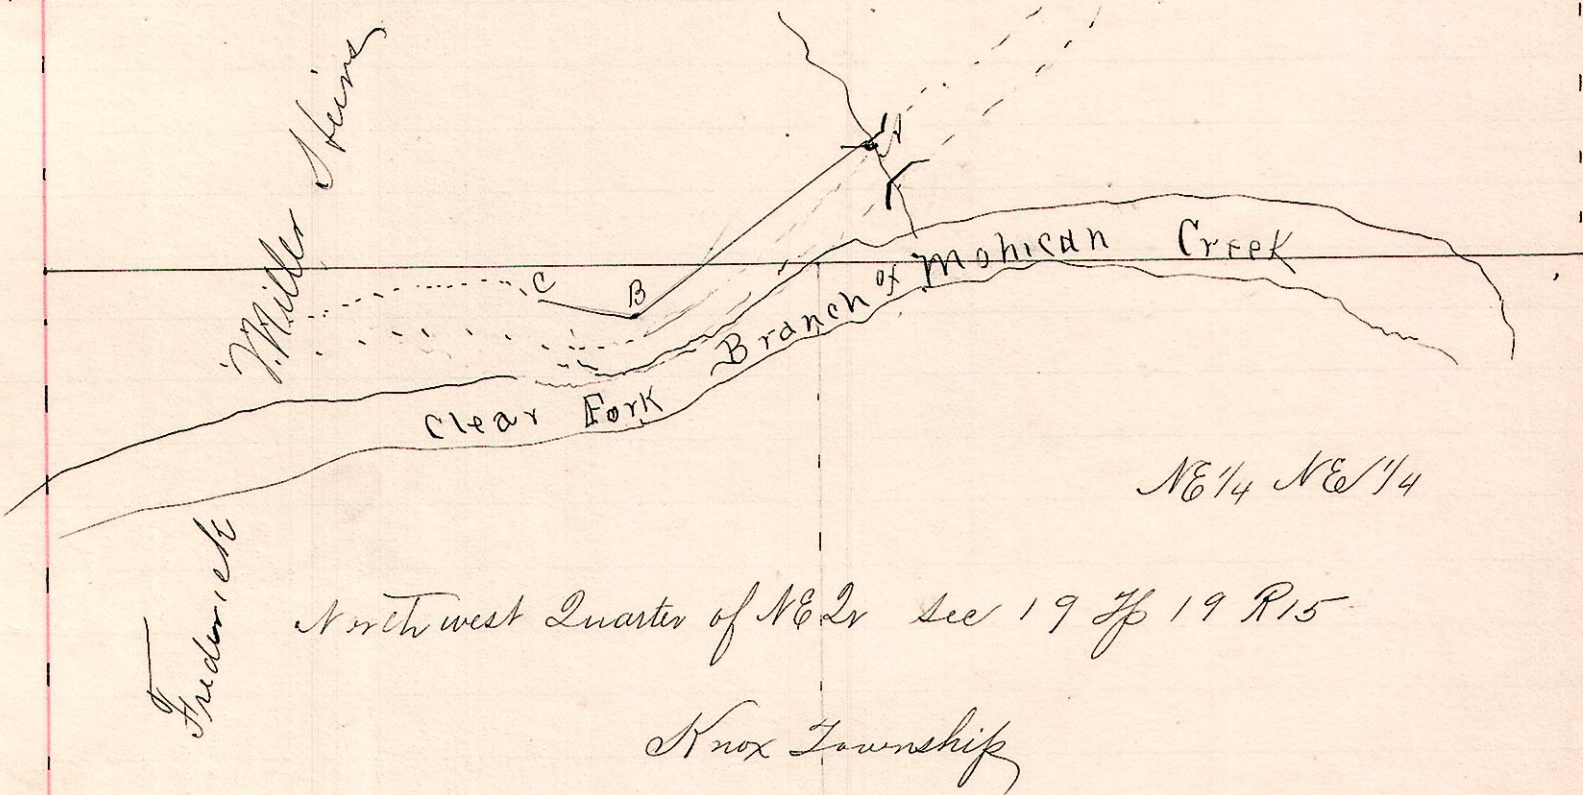 Frederick J. Miller Heirs
A
C
B
Clear Fork Branch of Mohican Creek
NE 1/4 NE 1/4
Northwest Quarter of NE Qr Sec 19 Tp 19 R15
Knox Township